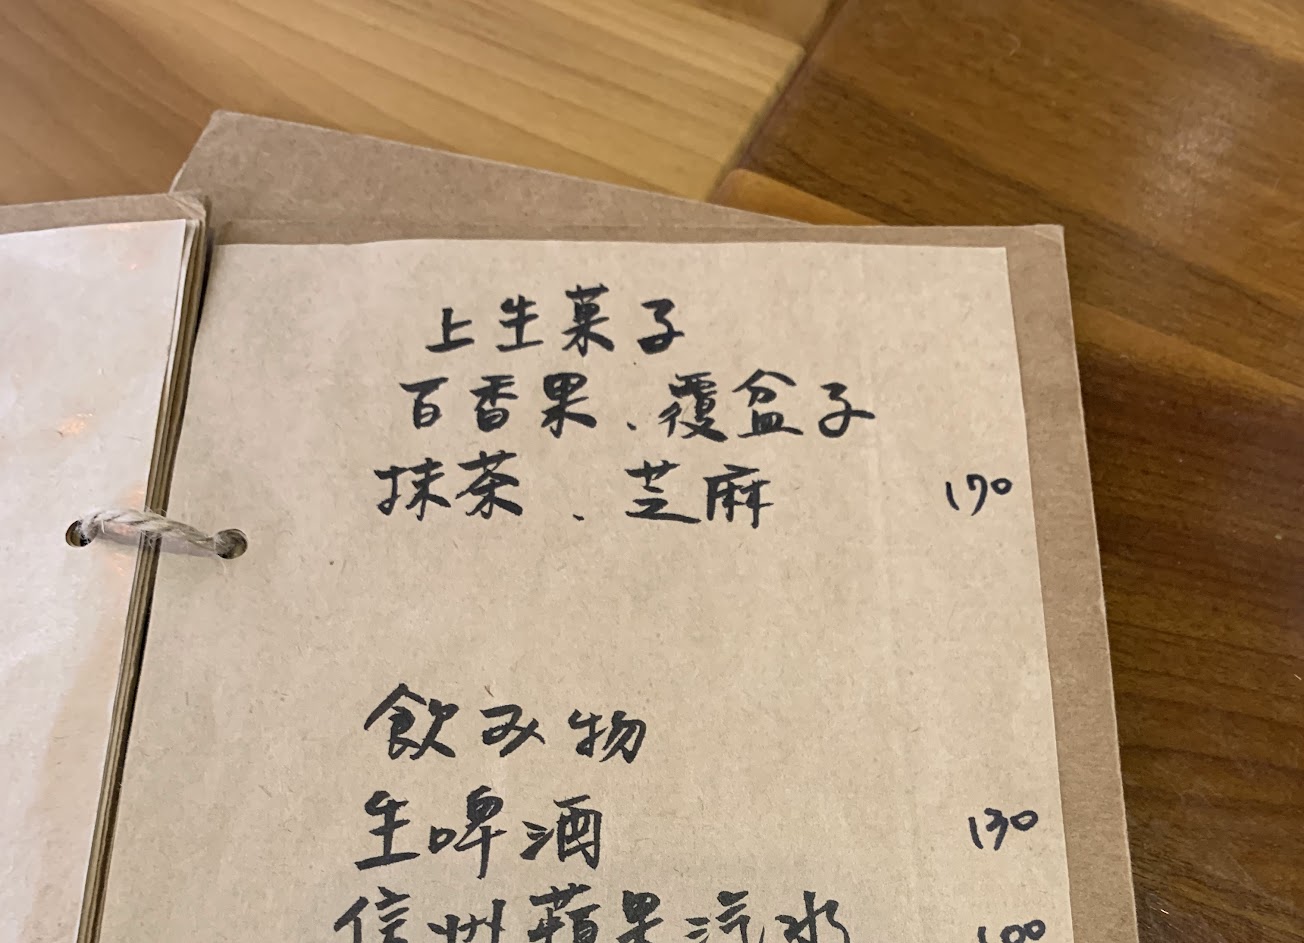 上生菓子
百香果、覆盆子
抹茶、芝麻 170
飲み物
生啤酒 130
信州蘋果汽水 100